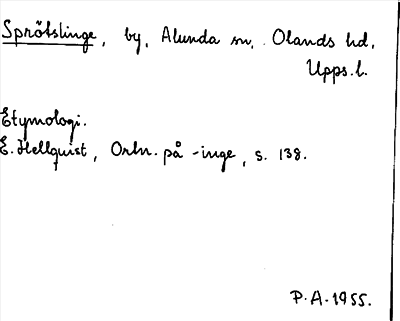 Sprötslinge, by, Alunda sn, Olands hd,
Upps. l.
Etymologi.
E. Hellquist, Ortn. på -inge, s. 138.
P. A. 1955.